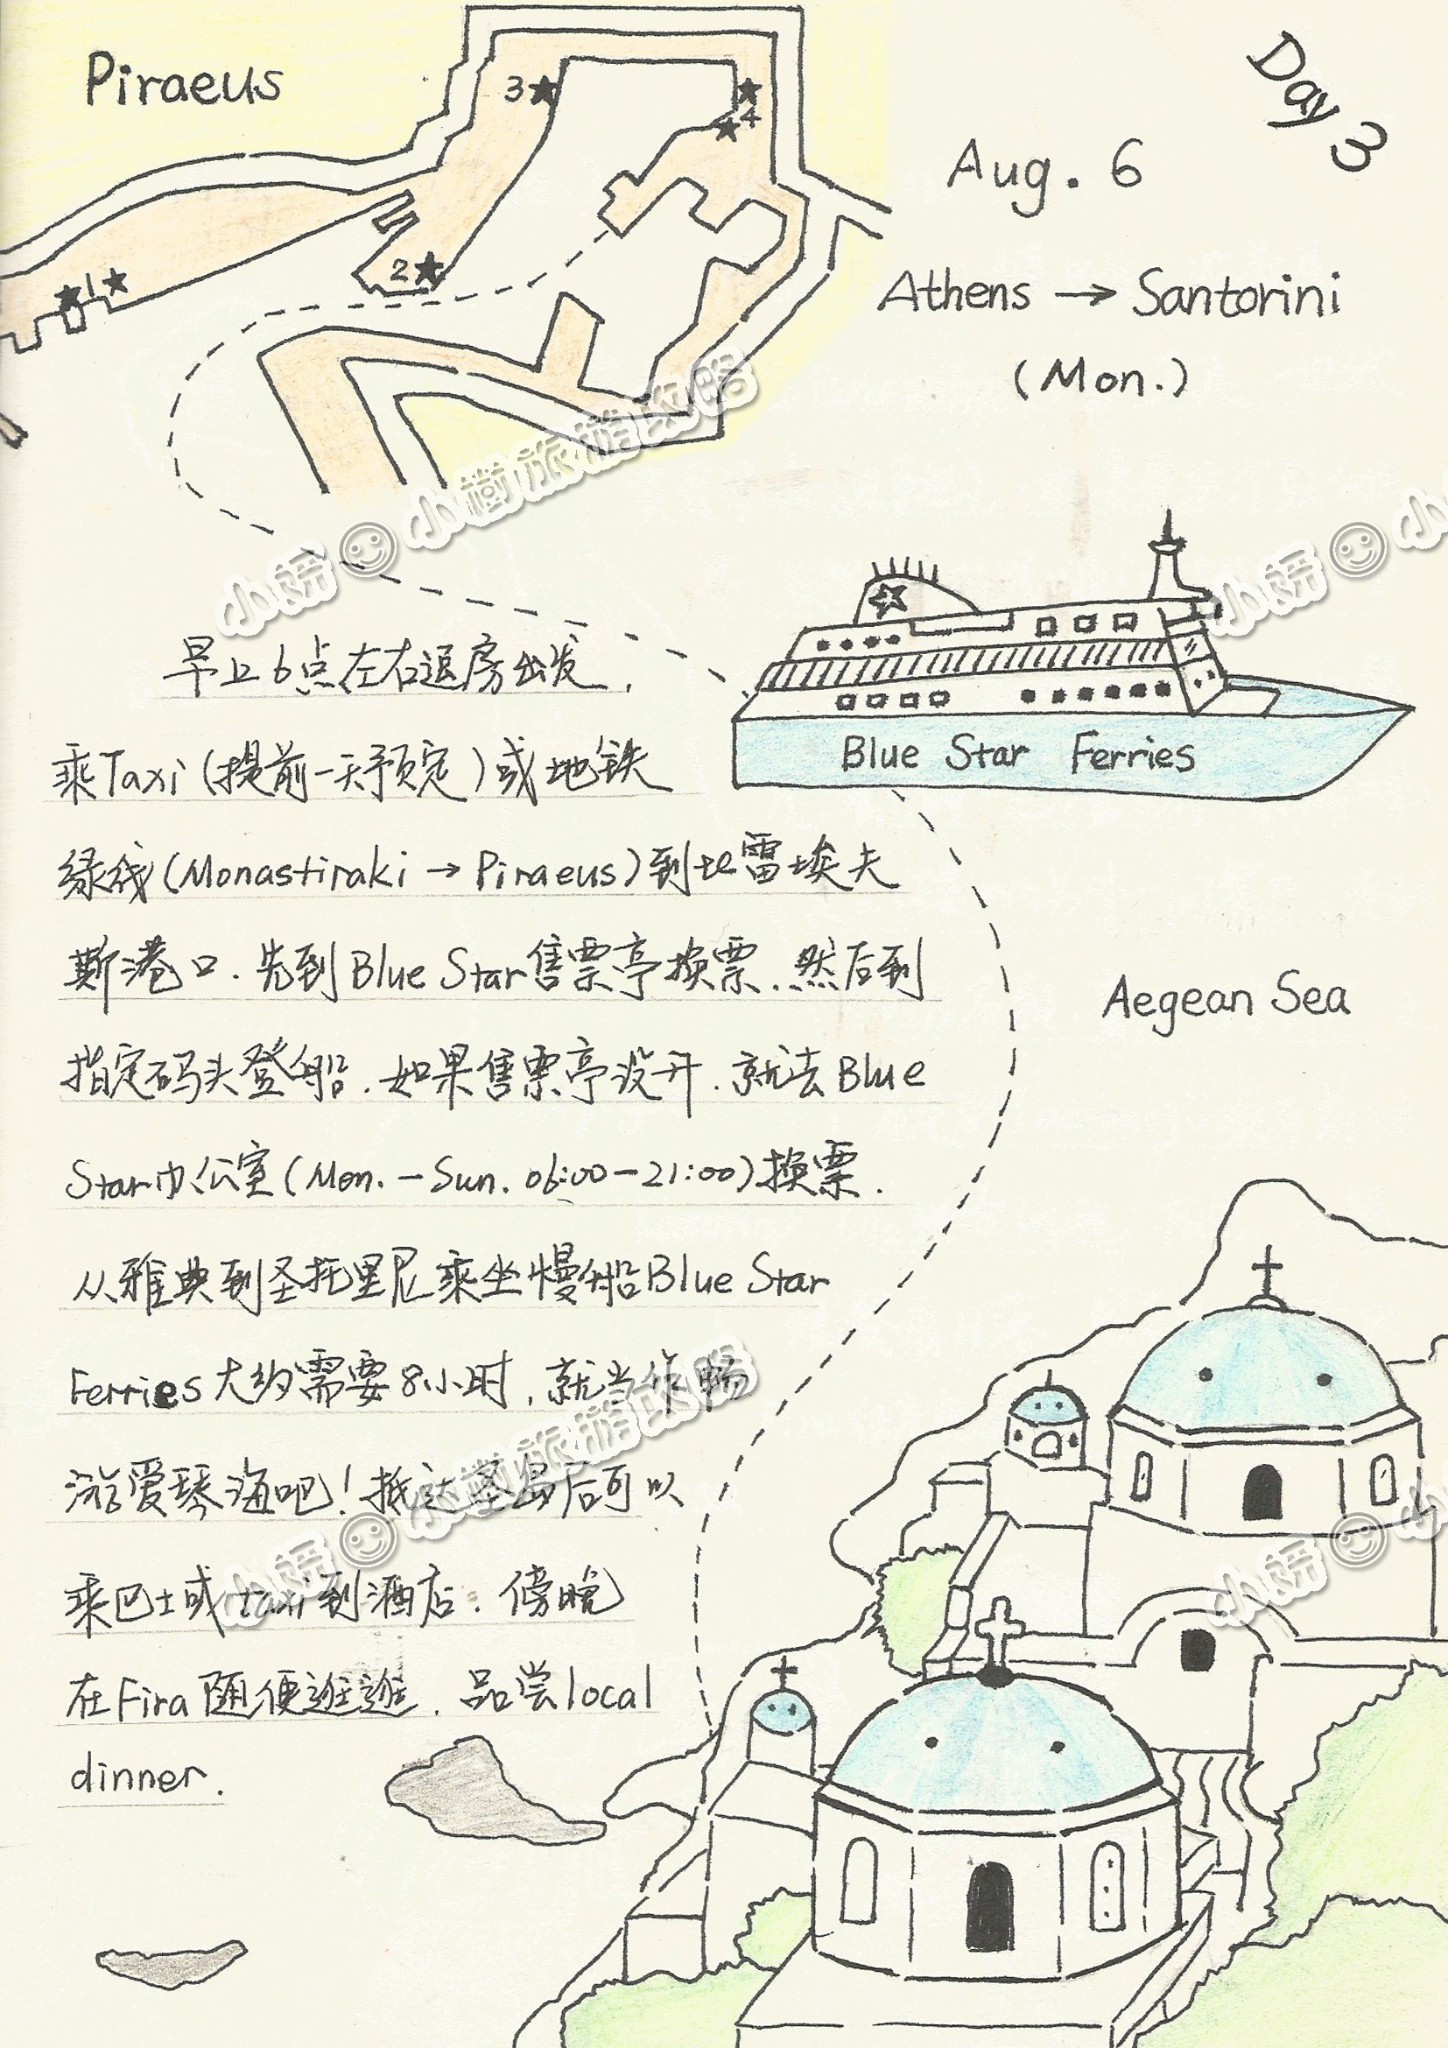 Piraeus
Day 3
3
4
2
1
Aug. 6
Athens → Santorini
(Mon.)
小妍☺小樹旅游攻略
小妍☺小
早上6点左右退房出发,
乘Taxi(提前一天预定)或地铁
Blue Star Ferries
绿线(Monastiraki→Piraeus)到比雷埃夫
斯港口.先到Blue Star售票亭换票.然后到
Aegean Sea
指定码头登船.如果售票亭没开.就去Blue
Star办公室(Mon.-Sun. 06:00-21:00)换票.
从雅典到圣托里尼乘坐慢船Blue Star
Ferries大约需要8小时,就当作畅
游爱琴海吧!抵达圣岛后可以
小妍☺小樹旅游攻略
小妍☺小
乘巴士或taxi到酒店.傍晚
在Fira随便逛逛.品尝local
dinner.